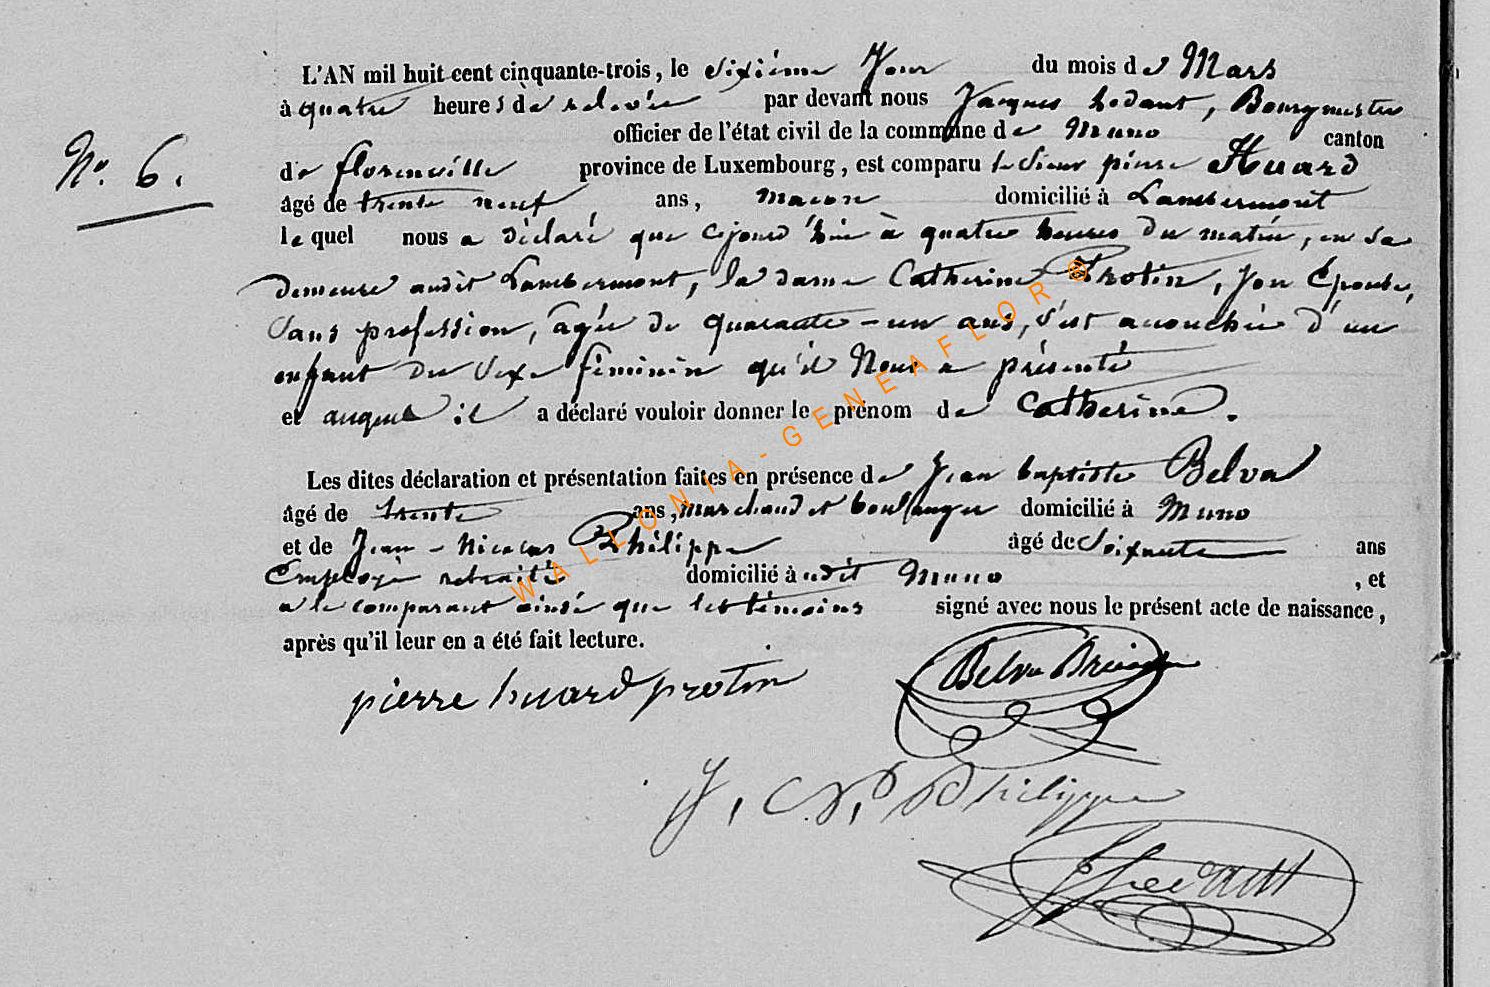 L'AN mil huit cent cinquante-trois, le sixiéme Jour du mois de Mars
à quatre heures de relevée par devant nous Jacques hodant, Bourgmestre
officier de l'état civil de la commune de Muno canton
N°. 6.
de florenville province de Luxembourg, est comparu le Sieur pierre Huard
âgé de trente neuf ans, macon domicilié à Lambermont
le quel nous a déclaré que cejourd'hui à quatre heures du matin, en sa
demeure audit Lambermont, la dame Catherine Protin, son Epouse,
Sans profession, agée de quarante-un ans, s'est acouchée d'un
enfant du Sexe féminin qu'il Nous a présenté
et auquel il a déclaré vouloir donner le prénom de Catherine.
Les dites déclaration et présentation faites en présence de Jean baptiste Belva
âgé de trente ans, marchand et boulanger domicilié à Muno
et de Jean-Nicolas Philippe âgé de Soixante ans
Employé retraité domicilié à udit Muno, et
a le comparant ainsi que les témoins signé avec nous le présent acte de naissance,
après qu'il leur en a été fait lecture.
pierre huard protin
Belva
J. N. Philippe
WALLONIA-GENEAFLOR®